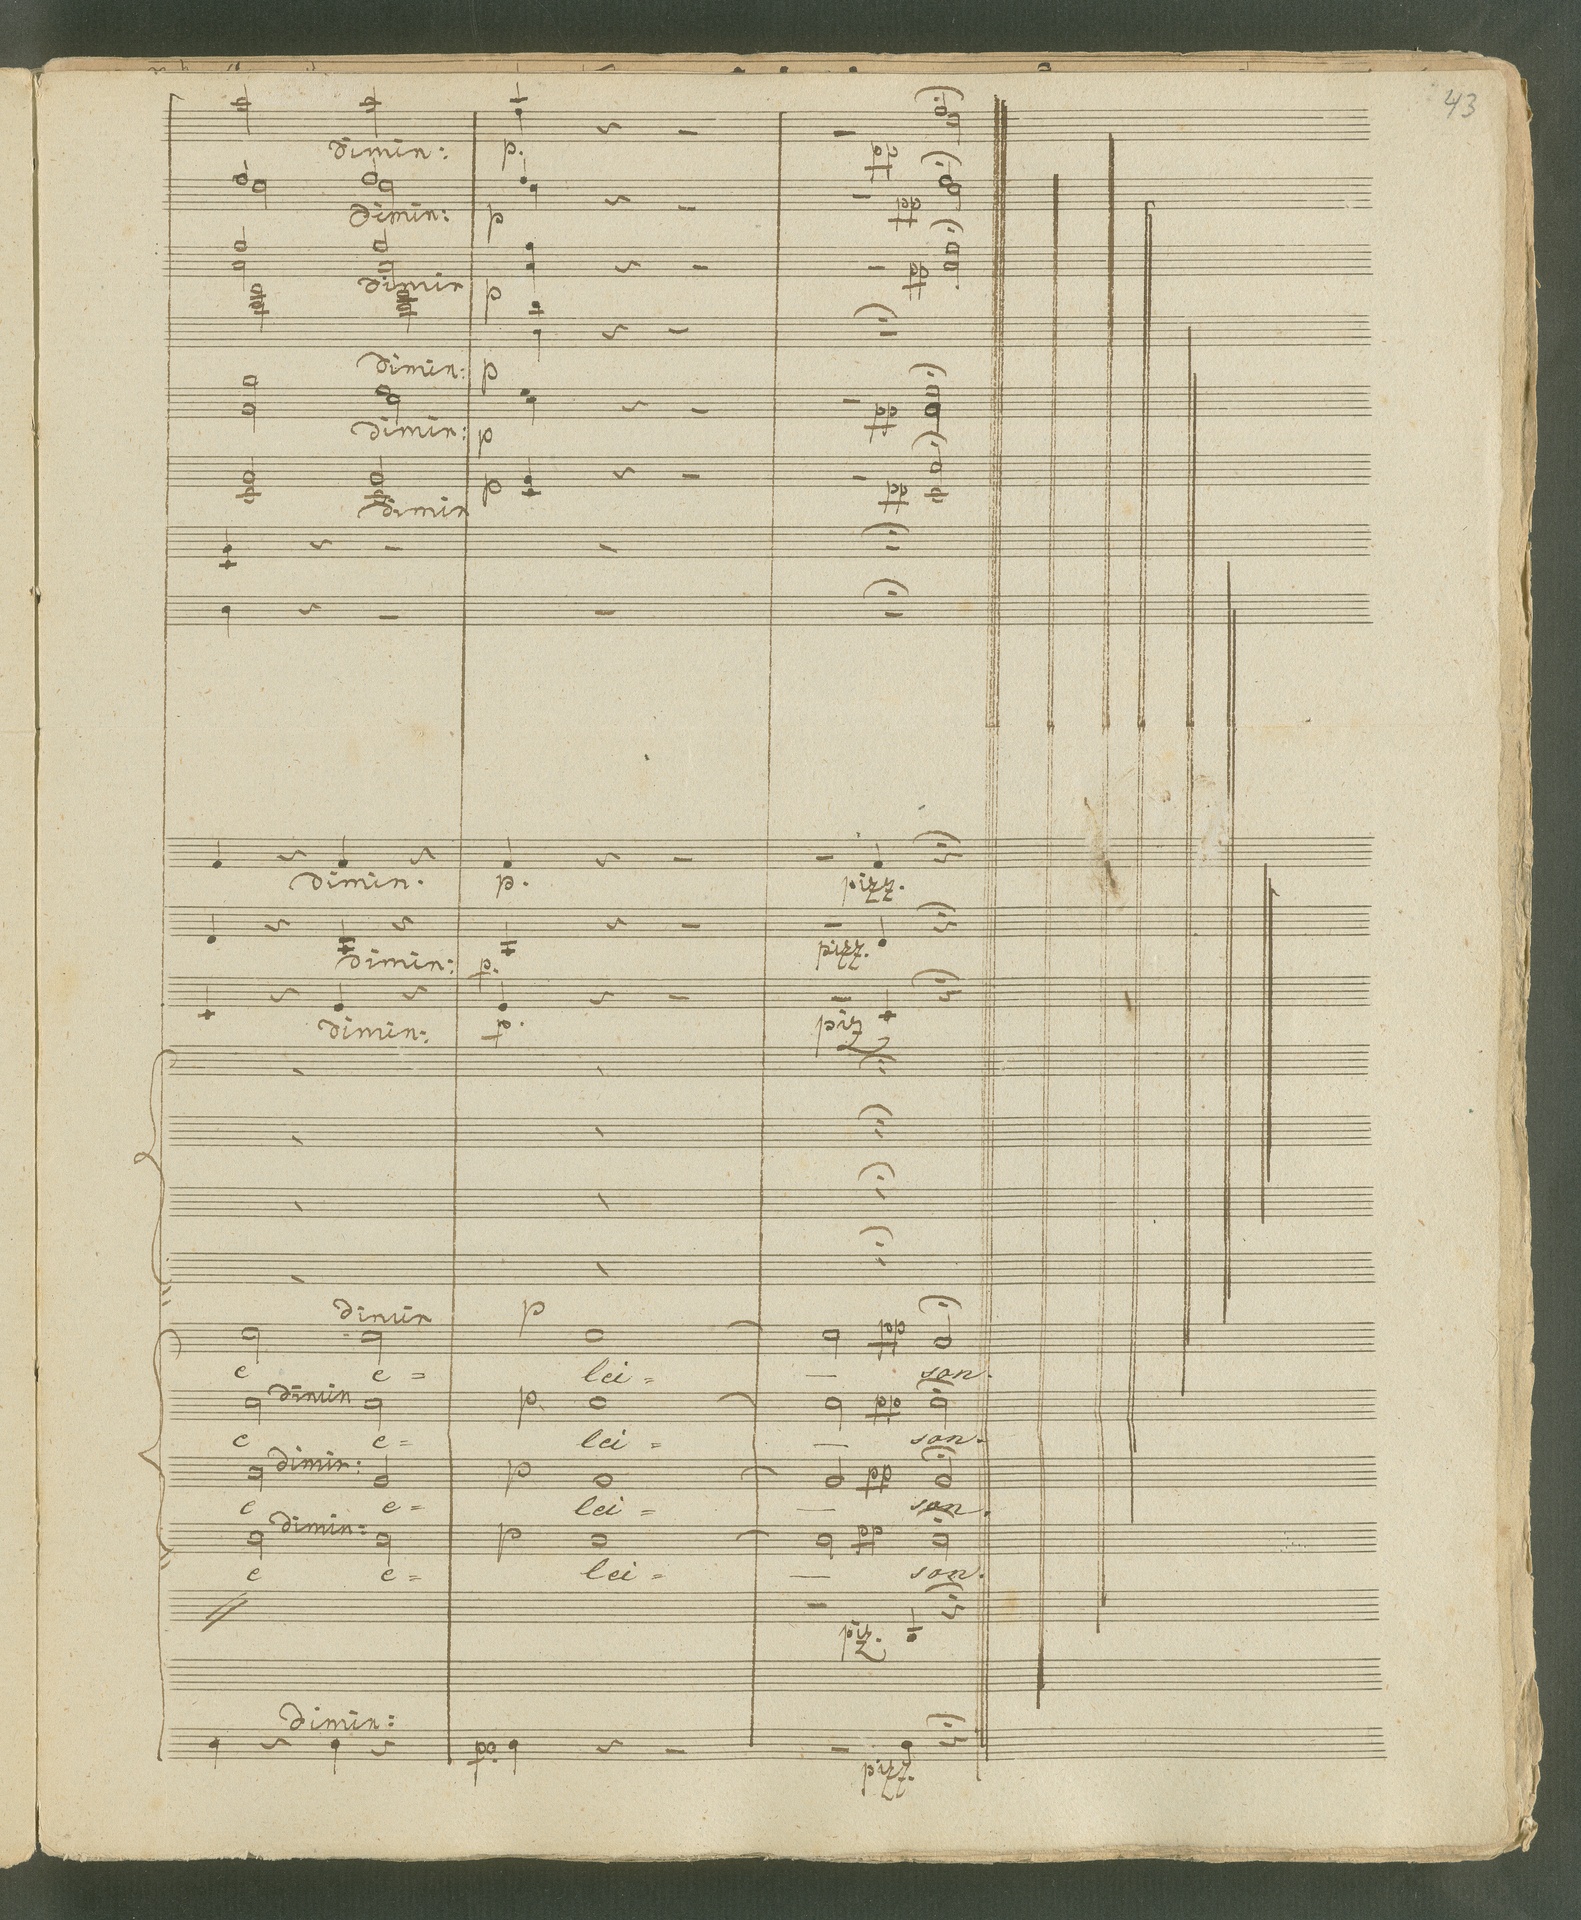 43
dimin: p. pp
dimin: p pp
dimin p pp
dimin: p
dimin: p pp
dimin p pp
dimin. p. pizz.
dimin: p. pizz.
dimin: p. piz
dimin p pp
e e = lei = — son.
dimin p. pp
e e = lei = — son.
dimin: p pp
e e = lei = — son.
dimin: p pp
e e = lei = — son.
piz.
dimin:
po. pizz.